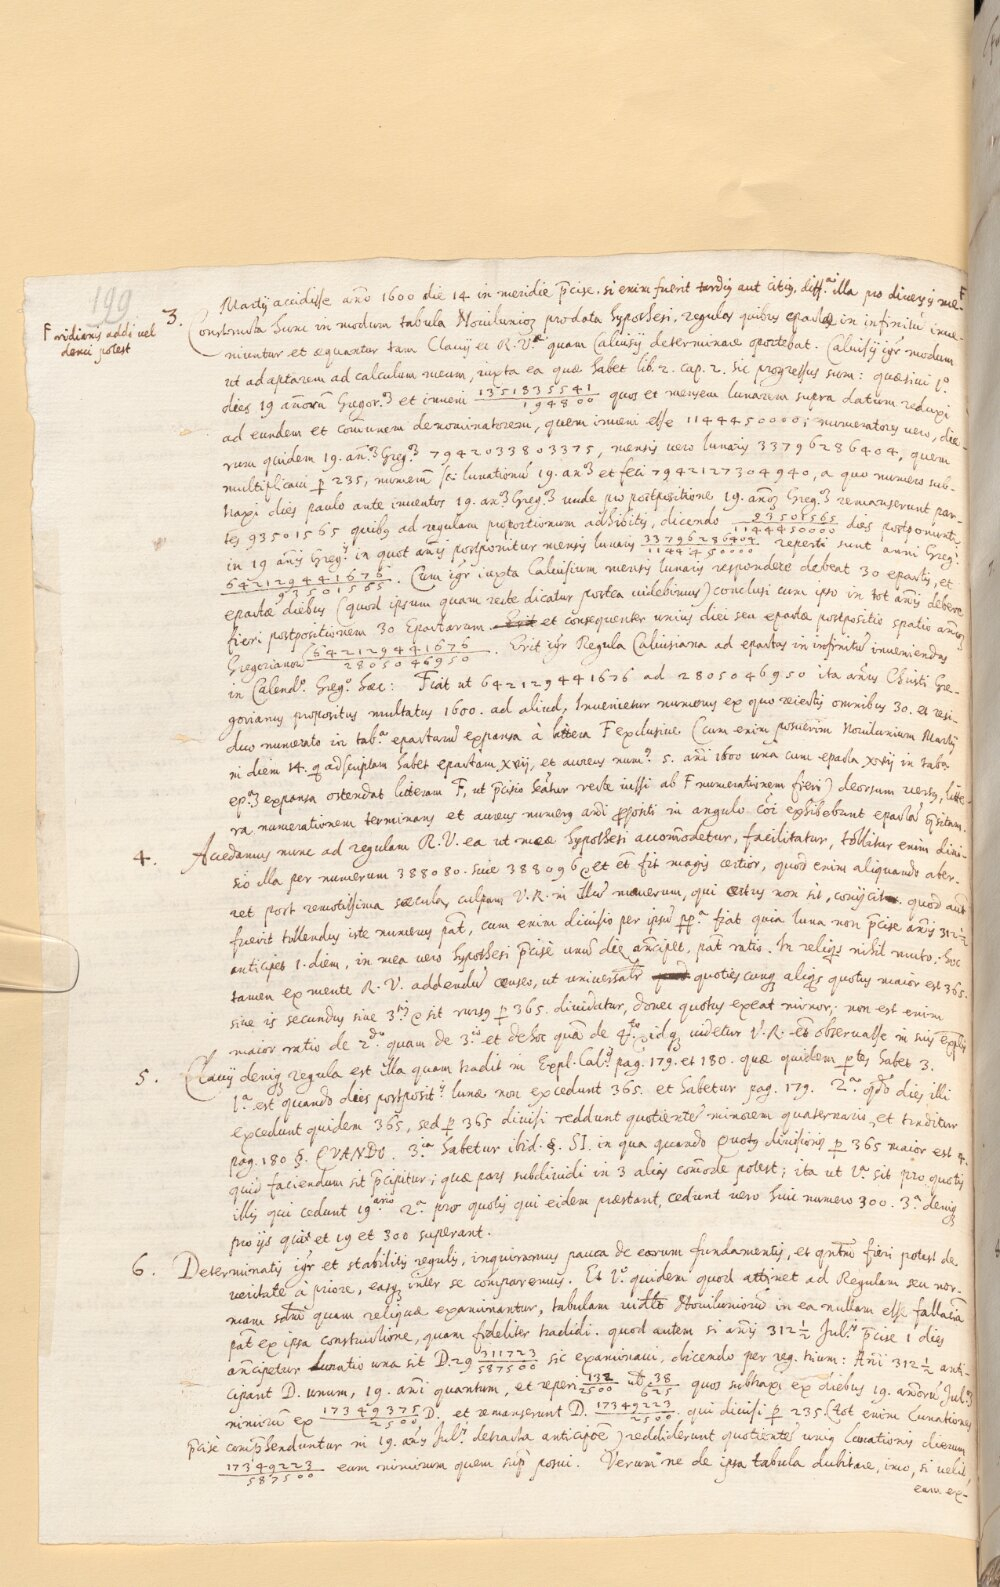 199
F ridionis addi vel
demi potest
Martij accidisse año 1600 die 14 in meridie p̄cise, si enim fuerit tardiq aut citiq, diff.ᵃ illa pro diversis me- F
3. Constructa hunc in modum tabula Noviluniorꝫ pro data hypothesi, regulas quibus epactæ in infinitū inve-
niuntur et æquantur tam Clavij et R. V.ᵃ quam Calvisij determinare oportebat. Calvisij igr̄ modum
ut adaptarem ad calculum meum, iuxta ea quæ habet lib. 2. cap. 2. sic progressus sum: quæsivi 1.º
dies 19 añorum Gregor.ꝫ et inveni 1351835541/194800 quos et mensem lunarem supra datum reduxi
ad eundem et comunem denominatorem, quem inveni esse 1144450000; numeratores vero, die-
rum quidem 19. añ.ꝫ Greg.ꝫ 7942033803375, mensis vero lunaris 33796286404, quem
multiplicavi p 235, numerum sci lunationū 19. añ.ꝫ et feci 7942127304940, a quo numero sub-
traxi dies paulo ante inventos 19. añ.ꝫ Greg.ꝫ unde pro postpositione 19. añoꝫ Greg.ꝫ remanserunt par-
tes 93501565 quibꝫ ad regulam proportionum adhibitis, dicendo 93501565/1144450000 dies postponunt:
in 19 añis Greg.ˢ in quot añis postponitur mensis lunaris 33796286404/1144450000 reperti sunt anni Greg.ⁱ
642129441676/93501565. Cum igr̄ iuxta Calvisium mensis lunaris respondere debeat 30 epactis, et
epactæ diebus (quod ipsum quam recte dicatur postea videbimus) conclusi cum ipso in tot añis debere
fieri postpositionem 30 Epactarum et consequenter unius diei seu epactæ postpositio spatio añoꝫ
Gregorianorū 642129441676/28050 46950. Erit igr̄ Regula Calvisiana ad epactas in infinitū inveniendas
in Calend.º Greg.º hæc: Fiat ut 6421294416 76 ad 2805046950 ita añus Christi Gre-
gorianus propositus multatus 1600. ad aliud, Invenietur numerus ex quo reiectis omnibus 30. et resi-
duo numerato in tab.ᵃ epactarū expansa à littera F exclusive (cum enim posuerim Novilunium Martij
in diem 14. q̨ adscriptam habet epactam xvij, et aureus num.ˢ 5. añi 1600 una cum epacta xvij in tab.
ep.ꝫ expansa ostendat litteram F, ut p̄cisio hēatur recte iussi ab F numerationem fieri) deorsum versꝫ, litte-
ra numerationem terminans et aureus numerꝫ añi p̄positi in angulo cōi exhibebunt epactā quæsitam.
4. Accedamus nunc ad regulam R. V. ea ut meæ hypothesi accomodetur, facilitatur, tollitur enim divi-
sio illa per numerum 388080. sive 388096 et et fit magis certior, quod enim aliquando aber-
ret post remotissima sæcula, culpam V. R. in illū numerum, qui certus non sit, conijcit quod aut̄
fuerit tollendus iste numerus pat̄, cum enim divisio per ipsū p̄p.ᵃ fiat quia luna non p̄cise añis 312½
anticipet 1. diem, in mea vero hypothesi p̄cisè unū diē añcipet, pat̄ ratio. In reliqꝫ nihil muto, hoc
tamen ex mente R. V. addendū censeo, ut universatr̄ quotiescunqꝫ aliqꝫ quotus maior est 365.
sive is secundus sive 3.ⁱᵘˢ sit rursꝫ p 365. dividatur, donec quotus exeat minor; non est enim
maior ratio de 2.dº quam de 3.º et de hoc quā de 4.to idqꝫ videtur V. R. observasse in suis explis
5. Clavij deniqꝫ regula est illa quam tradit in Expl. Cal.ʲ pag. 179. et 180. quæ quidem p̄tes habet 3.
1.ᵃ est quando dies postposit.s lunæ non excedunt 365. et habetur pag. 179. 2.ᵃ qdo dies illi
excedunt quidem 365, sed p 365 divisi reddunt quotientē minorem quaternario, et traditur
pag. 180 §. QVANDO. 3.ᵃ habetur ibid. §. SI. in qua quando Quotꝫ divisionis p 365 maior est 4.
quid faciendum sit p̄cipitur; quæ pars subdividi in 3 alias comode potest; ita ut 1.ᵃ sit pro quotis
illis qui cedunt 19.ario 2.ᵃ pro quotis qui eidem præstant, cedunt vero huic numero 300. 3.ᵃ deniqꝫ
pro ijs qui et 19 et 300 superant.
6. Determinatis igr̄ et stabilitis regulis, inquiramus pauca de earum fundamentis, et qntm̄ fieri potest de
veritate à priore, easqꝫ inter se comparemus. Et 1.º quidem quod attinet ad Regulam seu nor-
mam sdm̄ quam reliquæ examinantur, tabulam Noviluniorū in ea nullam esse fallaciā
pat̄ ex ipsa constructione, quam fideliter tradidi. quod autem si añis 312½ Jul.ˢ p̄cise 1 dies
añcipetur lunatio una sit D. 29 311723/587500 sic examinavi, dicendo per reg. trium: Añi 312½ anti-
cipant D. unum, 19. añi quantum, et reperi 152/2500 38/625 quos subtraxi ex diebus 19. añorū Jul.ꝫ
nimirū ex 17349375/2500 D. et remanserunt D. 17349223/2500. qui divisi p 235. (tot enim lunationes
p̄cisè comp̄henduntur in 19. añis Jul.s detracta anticipōe) reddiderunt quotientē uniꝫ lunationis dierum
17349223/587500 eum nimirum quem sup̄ posui. Verum ne de ipsa tabula dubitare, imo, si velit,
eam ex-